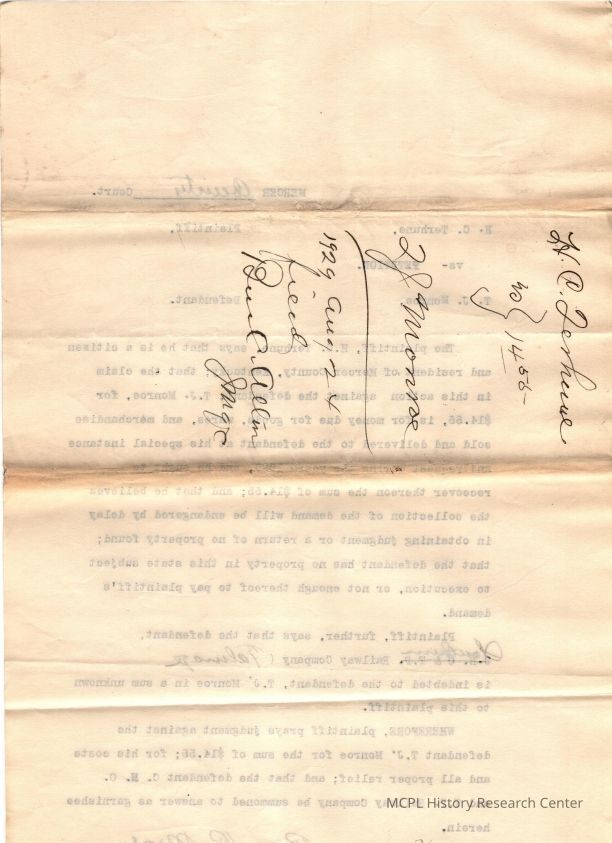 H. C. Terhune
vs } 14.55
T J Monroe
1929 Aug. 24
filed
MERCER County Court.
H. C. Terhune, Plaintiff,
vs- PETITION
T. J. Monroe, Defendant.
The plaintiff, H. C. Terhune, says that he is a citizen
and resident of Mercer County, Kentucky; that the claim
in this action against the defendant, T.J. Monroe, for
$14.55, is for money due for goods, wares, and merchandise
sold and delivered to the defendant at his special instance
and request
recover thereon the sum of $14.55; and that he believes
the collection of the demand will be endangered by delay
in obtaining judgment or a return of no property found;
that the defendant has no property in this state subject
to execution, or not enough thereof to pay plaintiff's
demand.
Plaintiff, further, says that the defendant,
Southern Railway Company (Talmage
is indebted to the defendant, T.J' Monroe in a sum unknown
to this plaintiff.
WHEREFORE, plaintiff prays judgment against the
defendant T.J' Monroe for the sum of $14.55; for his costs
and all proper relief; and that the defendant C. N. O.
and T.P. Railway Company be summoned to answer as garnishee
herein.
MCPL History Research Center